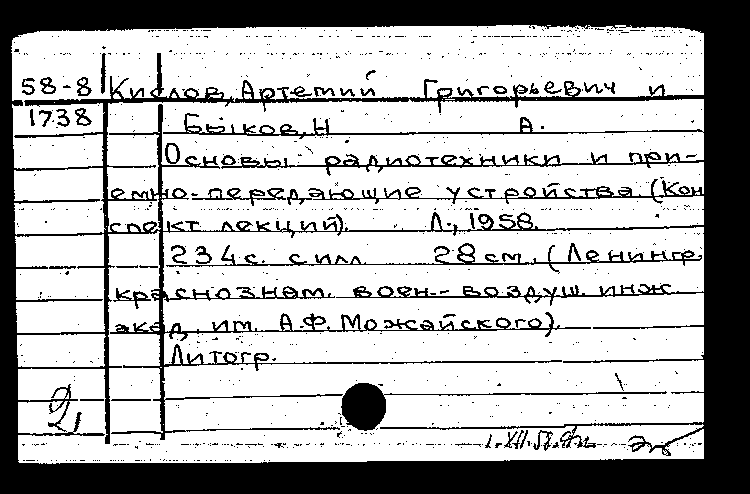 58-8 Кислов, Артемий Григорьевич и
1738 Быков, Н А.
Основы радиотехники и при-
емно-передающие устройства (Кон
спект лекций). Л., 1958.
234 с. с илл. 28 см. (Ленингр.
краснознам. воен.-воздуш. инж.
акад. им. А.Ф. Можайского).
Литогр.
2